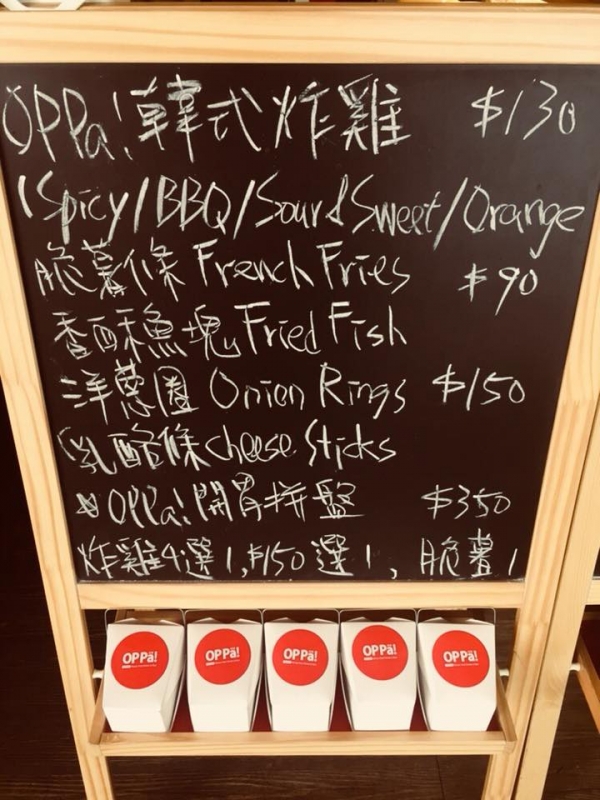 OPPa!韓式炸雞 $130
(Spicy/BBQ/Sour&Sweet/Orange
脆薯條 French Fries $90
香酥魚塊 Fried Fish
洋蔥圈 Onion Rings $150
乳酪條 cheese Sticks
OPPa!開胃拼盤 $350
炸雞4選1,$150選1,脆薯1
OPPä! OPPä! OPPä! OPPä! OPPä!